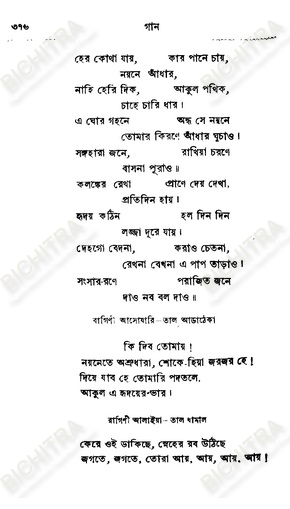 ৩৭৬ গান
হের কোথা যায়, কার পানে চায়,
নয়নে আঁধার,
নাহি হেরি দিক, আকুল পথিক,
চাহে চারি ধার।
এ ঘোর গহনে অন্ধ সে নয়নে
তোমার কিরণে আঁধার ঘুচাও।
সঙ্গহারা জনে, রাখিয়া চরণে
বাসনা পূরাও॥
কলঙ্কের রেখা প্রাণে দেয় দেখা,
প্রতিদিন হায়।
হৃদয় কঠিন হল দিন দিন
লজ্জা দূরে যায়।
দেহগো বেদনা, করাও চেতনা,
রেখনা রেখনা এ পাপ তাড়াও।
সংসার-রণে পরাজিত জনে
দাও নব বল দাও॥
রাগিণী আসোয়ারি–তাল আড়াঠেকা
কি দিব তোমায়!
নয়নেতে অশ্রুধারা, শোকে-হিয়া জরজর হে!
দিয়ে যাব হে তোমারি পদতলে.
আকুল এ হৃদয়ের-ভার।
রাগিণী আলাইয়া–তাল ধামাল
ফেরে ওই ডাকিছে, স্নেহের রব উঠিছে
জগতে, জগতে, তোরা আয়. আয়, আয়. আয়!
BICHITRA
BICHITRA
BICHITRA
BICHITRA